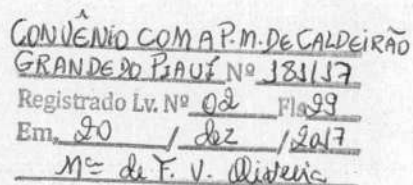 CONVÊNIO COM A P.M. DE CALDEIRÃO
GRANDE DO PIAUÍ Nº 181/17
Registrado Lv. Nº 02 Fls 99
Em, 20 / dez / 2017
Mª de F. V. Oliveira